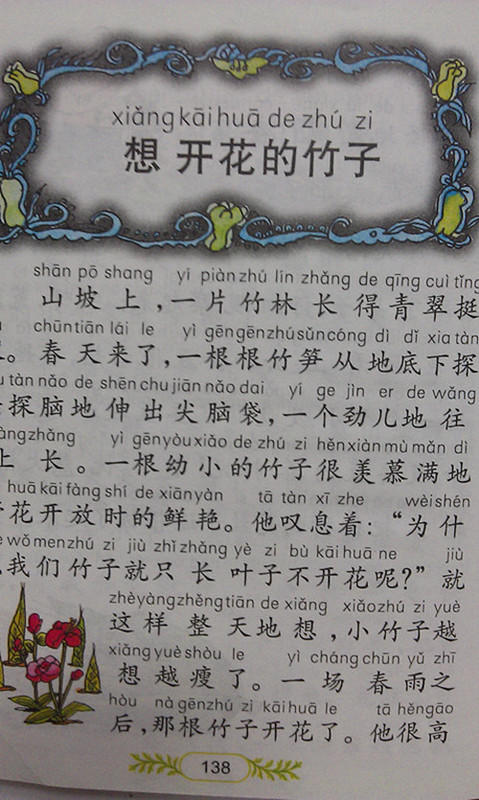 xiǎng kāi huā de zhú zi
想 开花的竹子
shān pō shang yí piàn zhú lín zhǎng de qīng cuì tǐng
山 坡 上，一 片 竹 林 长 得 青 翠 挺
chūn tiān lái le yì gēn gēn zhú sǔn cóng dì dǐ xia tàn
。春 天 来 了，一 根 根 竹 笋 从 地 底 下 探
tàn nǎo de shēn chu jiān nǎo dai yí ge jìn er de wǎng
探 脑 地 伸 出 尖 脑 袋，一 个 劲 儿 地 往
zhǎng yì gēn yòu xiǎo de zhú zi hěn xiàn mù mǎn dì
上 长 。一 根 幼 小 的 竹 子 很 羡 慕 满 地
huā kāi fàng shí de xiān yàn tā tàn xī zhe wèi shén
花 开 放 时 的 鲜 艳 。他 叹 息 着：“为 什
wǒ men zhú zi jiù zhǐ zhǎng yè zi bù kāi huā ne jiù
我 们 竹 子 就 只 长 叶 子 不 开 花 呢？”就
zhè yàng zhěng tiān de xiǎng xiǎo zhú zi yuè
这 样 整 天 地 想，小 竹 子 越
xiǎng yuè shòu le yì cháng chūn yǔ zhī
想 越 瘦 了。一 场 春 雨 之
hòu nà gēn zhú zi kāi huā le tā hěn gāo
后，那 根 竹 子 开 花 了。他 很 高
138